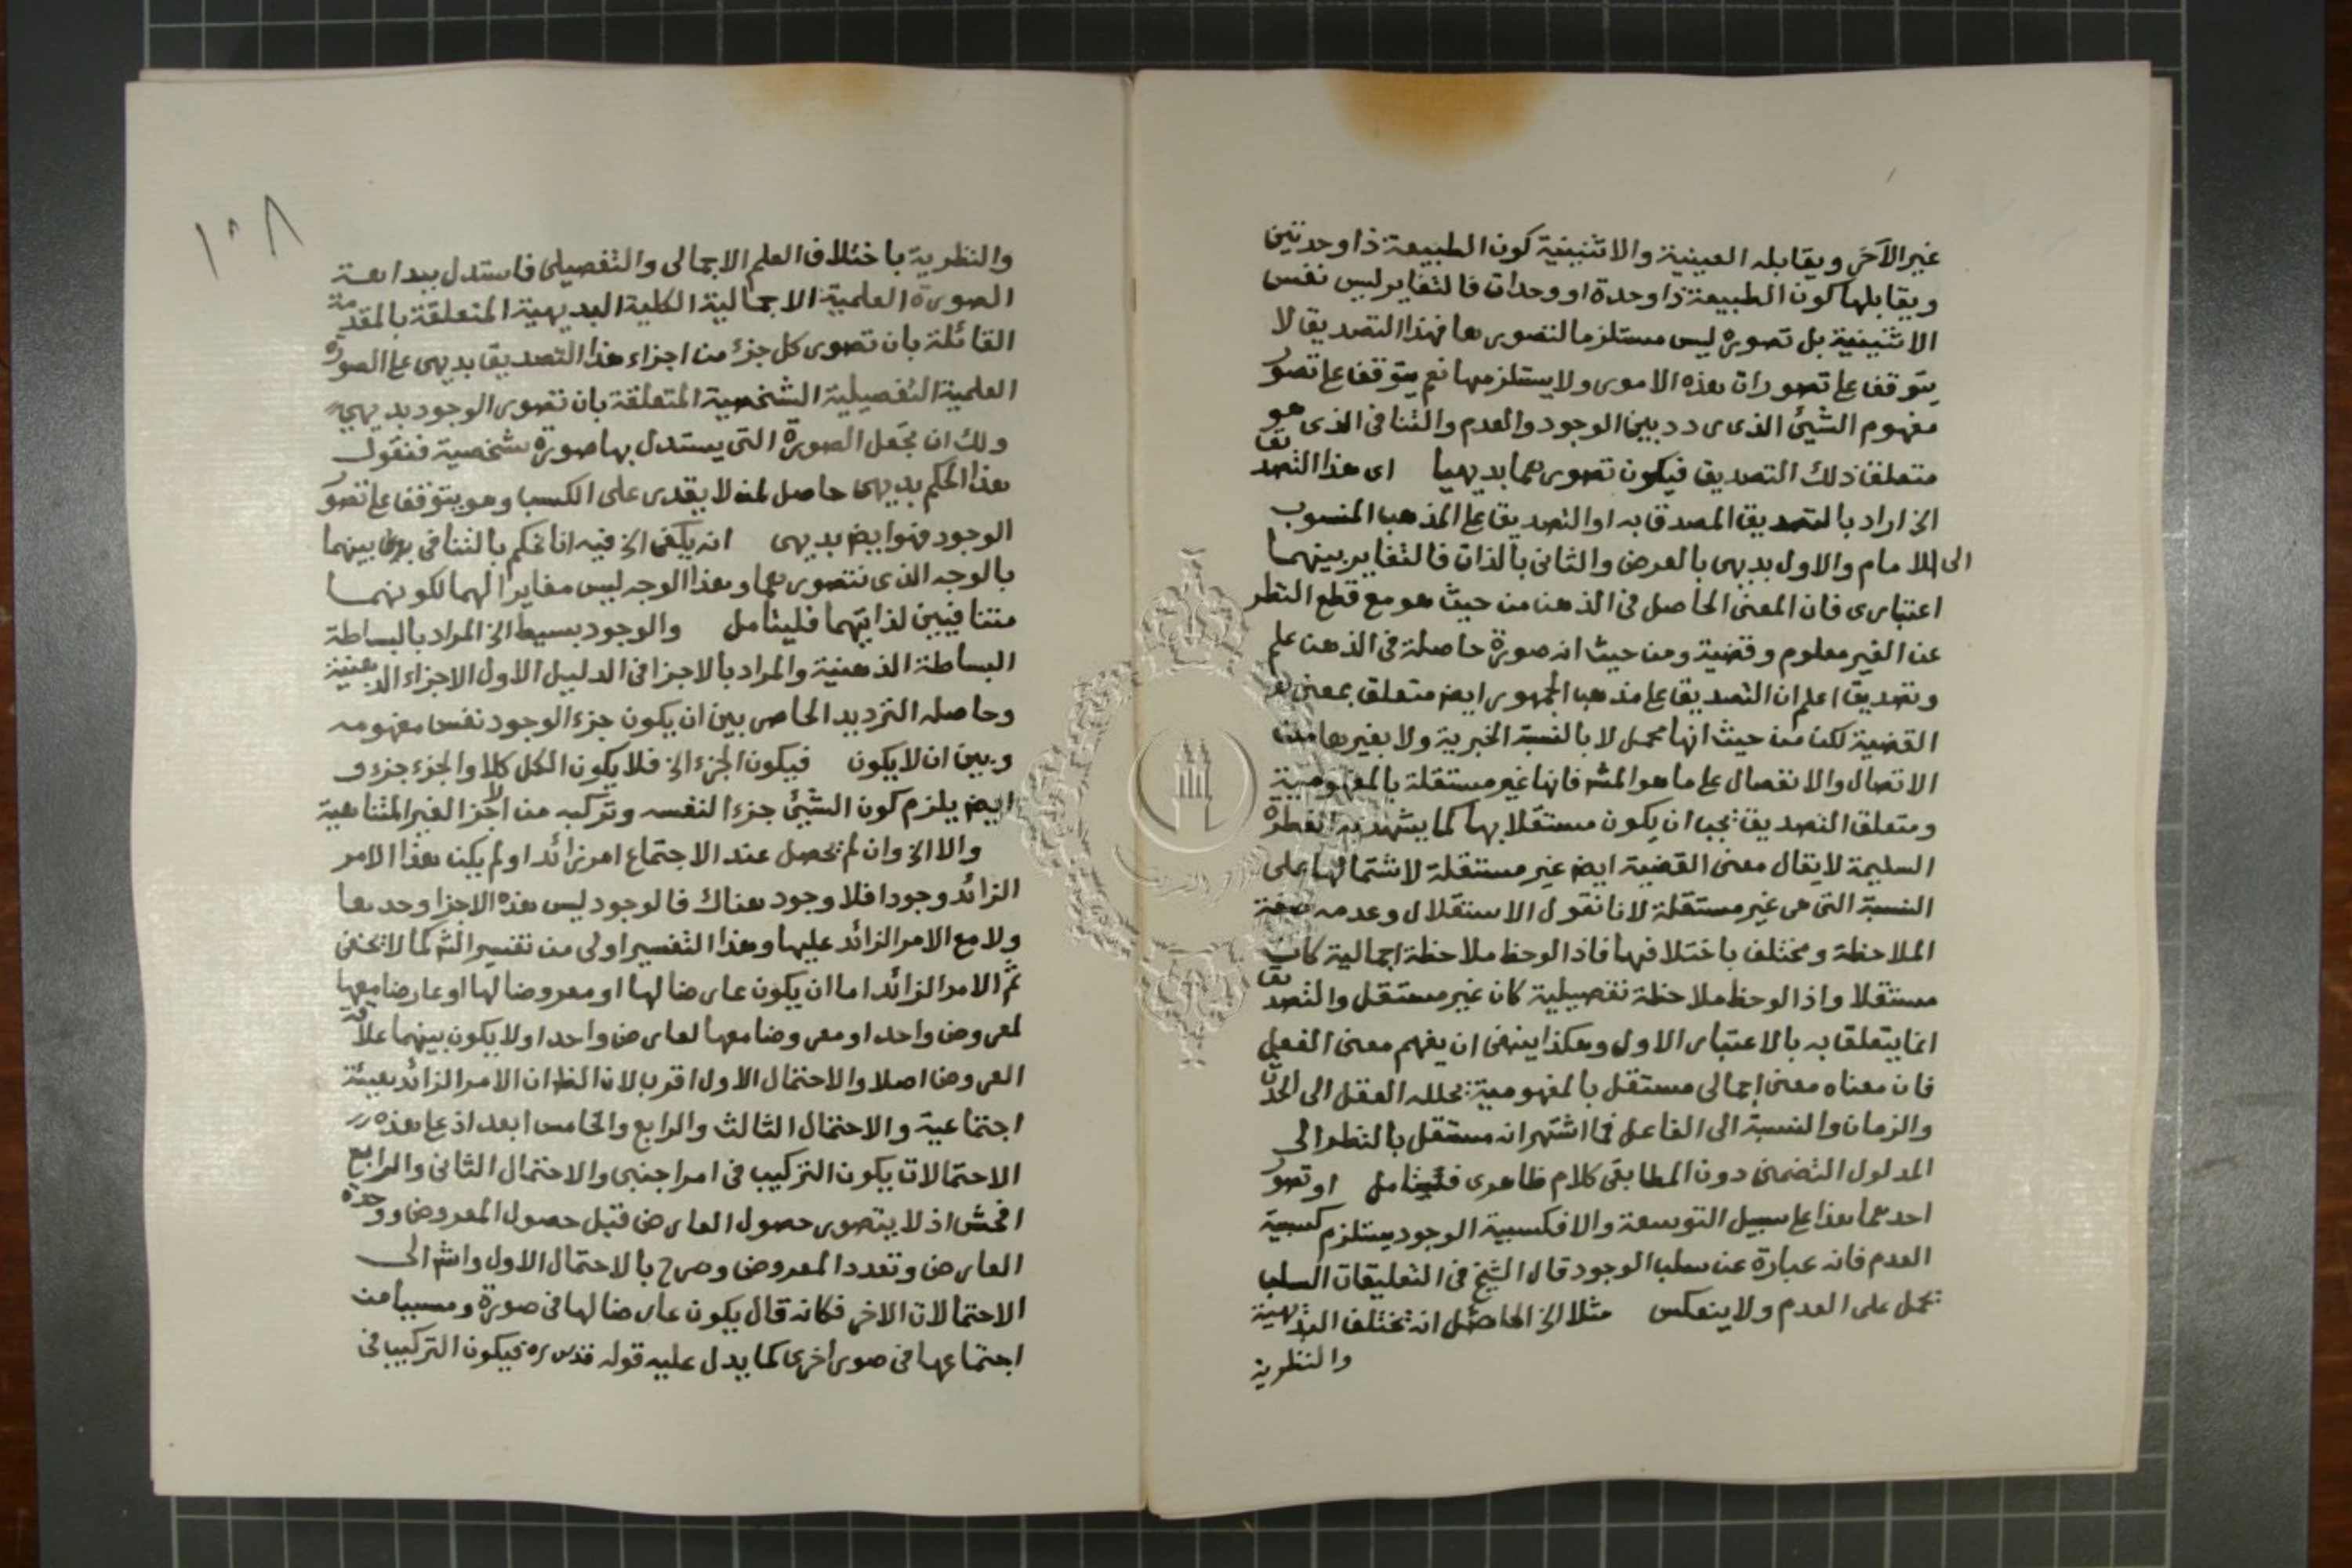 غير الآخر ويقابله العينية والاثنينية كون الطبيعة ذا وحدتين
ويقابلها كون الطبيعة ذا وحدة او وحدات فالتغاير ليس نفس
الاثنينية بل تصوره ليس مستلزما لتصورها فهذا التصديق لا
يتوقف على تصورات هذه الامور ولا يستلزمها نعم يتوقف على تصور
مفهوم الشيئ الذى ردد بين الوجود والعدم والتنافى الذى هو
متعلق ذلك التصديق فيكون تصورهما بديهيا اى هذا التصديق
الخ اراد بالتصديق المصدق به او التصديق على المذهب المنسوب
الى الامام والاول بديهى بالعرض والثانى بالذات فالتغاير بينهما
اعتبارى فان المعنى الحاصل فى الذهن من حيث هو مع قطع النظر
عن الغير معلوم وقضية ومن حيث انه صورة حاصلة فى الذهن علم
وتصديق اعلم ان التصديق على مذهب الجمهور ايضا متعلق بمعنى
القضية لكن من حيث انها مجمل لا بالنسبة الخبرية ولا بغيرها من
الاتصال والانفصال على ما هو المشه فانها غير مستقلة بالمفهومية
ومتعلق التصديق يجب ان يكون مستقلا بها كما يشهد به الفطرة
السليمة لا يقال معنى القضية ايضا غير مستقلة لاشتمالها على
النسبة التى هى غير مستقلة لانا نقول الاستقلال وعدمه صفة
الملاحظة ومختلف باختلافها فاذا لوحظ ملاحظة اجمالية كان
مستقلا واذا لوحظ ملاحظة تفصيلية كان غير مستقل والتصديق
انما يتعلق به بالاعتبار الاول وهكذا ينبغى ان يفهم معنى الفعل
فان معناه معنى اجمالى مستقل بالمفهومية يحلله العقل الى الحدث
والزمان والنسبة الى الفاعل فما اشتهر انه مستقل بالنظر الى
المدلول التضمنى دون المطابقى كلام ظاهرى فليتامل او تصور
احدهما هذا على سبيل التوسعة والا فكسبية الوجود يستلزم كسبية
العدم فانه عبارة عن سلب الوجود قال الشيخ فى التعليقات السلب
يحمل على العدم ولا ينعكس مثلا الخ الحاصل انه تختلف البديهية
والنظرية
١٠٨
والنظرية باختلاف العلم الاجمالى والتفصيلى فاستدل ببداهة
الصورة العلمية الاجمالية الكلية البديهية المتعلقة بالمقدمة
القائلة بان تصور كل جزء من اجزاء هذا التصديق بديهى على الصورة
العلمية التفصيلية الشخصية المتعلقة بان تصور الوجود بديهى
ولك ان تجعل الصورة التى يستدل بها صورة شخصية فنقول
هذا الحكم بديهى حاصل لمن لا يقدر على الكسب وهو يتوقف على تصور
الوجود فهو ايضا بديهى انه يكفى الخ فيه انا نحكم بالتنافى بينهما
بالوجه الذى نتصورهما وهذا الوجه ليس مغايرا لهما لكونهما
متنافيين لذاتيهما فليتامل والوجود بسيط الخ المراد بالبساطة
البساطة الذهنية والمراد بالاجزا فى الدليل الاول الاجزاء الذهنية
وحاصله الترديد الحاصر بين ان يكون جزء الوجود نفس مفهومه
وبين ان لا يكون فيكون الجزء الخ فلا يكون الكل كلا والجزء جزء و
ايضا يلزم كون الشيئ جزءا لنفسه وتركبه من الاجزا الغير المتناهية
والا الخ وان لم يحصل عند الاجتماع امر زائد او لم يكن هذا الامر
الزائد وجودا فلا وجود هناك فالوجود ليس هذه الاجزا وحدها
ولا مع الامر الزائد عليها وهذا التفسير اولى من تفسير الشه كما لا يخفى
ثم الامر الزائد اما ان يكون عارضا لها او معروضا لها او عارضا معها
لمعروض واحد او معروضا معها لعارض واحد او لا يكون بينهما علاقة
العروض اصلا والاحتمال الاول اقرب لان الظ ان الامر الزائد هيئة
اجتماعية والاحتمال الثالث والرابع والخامس ابعد اذ على هذه
الاحتمالات يكون التركيب فى امر اجنبى والاحتمال الثانى والرابع
افحش اذ لا يتصور حصول العارض قبل حصول المعروض ووحدة
العارض وتعدد المعروض وصرح بالاحتمال الاول واشه الى
الاحتمالات الاخر فكانه قال يكون عارضا لها فى صورة ومسببا من
اجتماعها فى صور اخرى كما يدل عليه قوله قدس سره فيكون التركيب فى